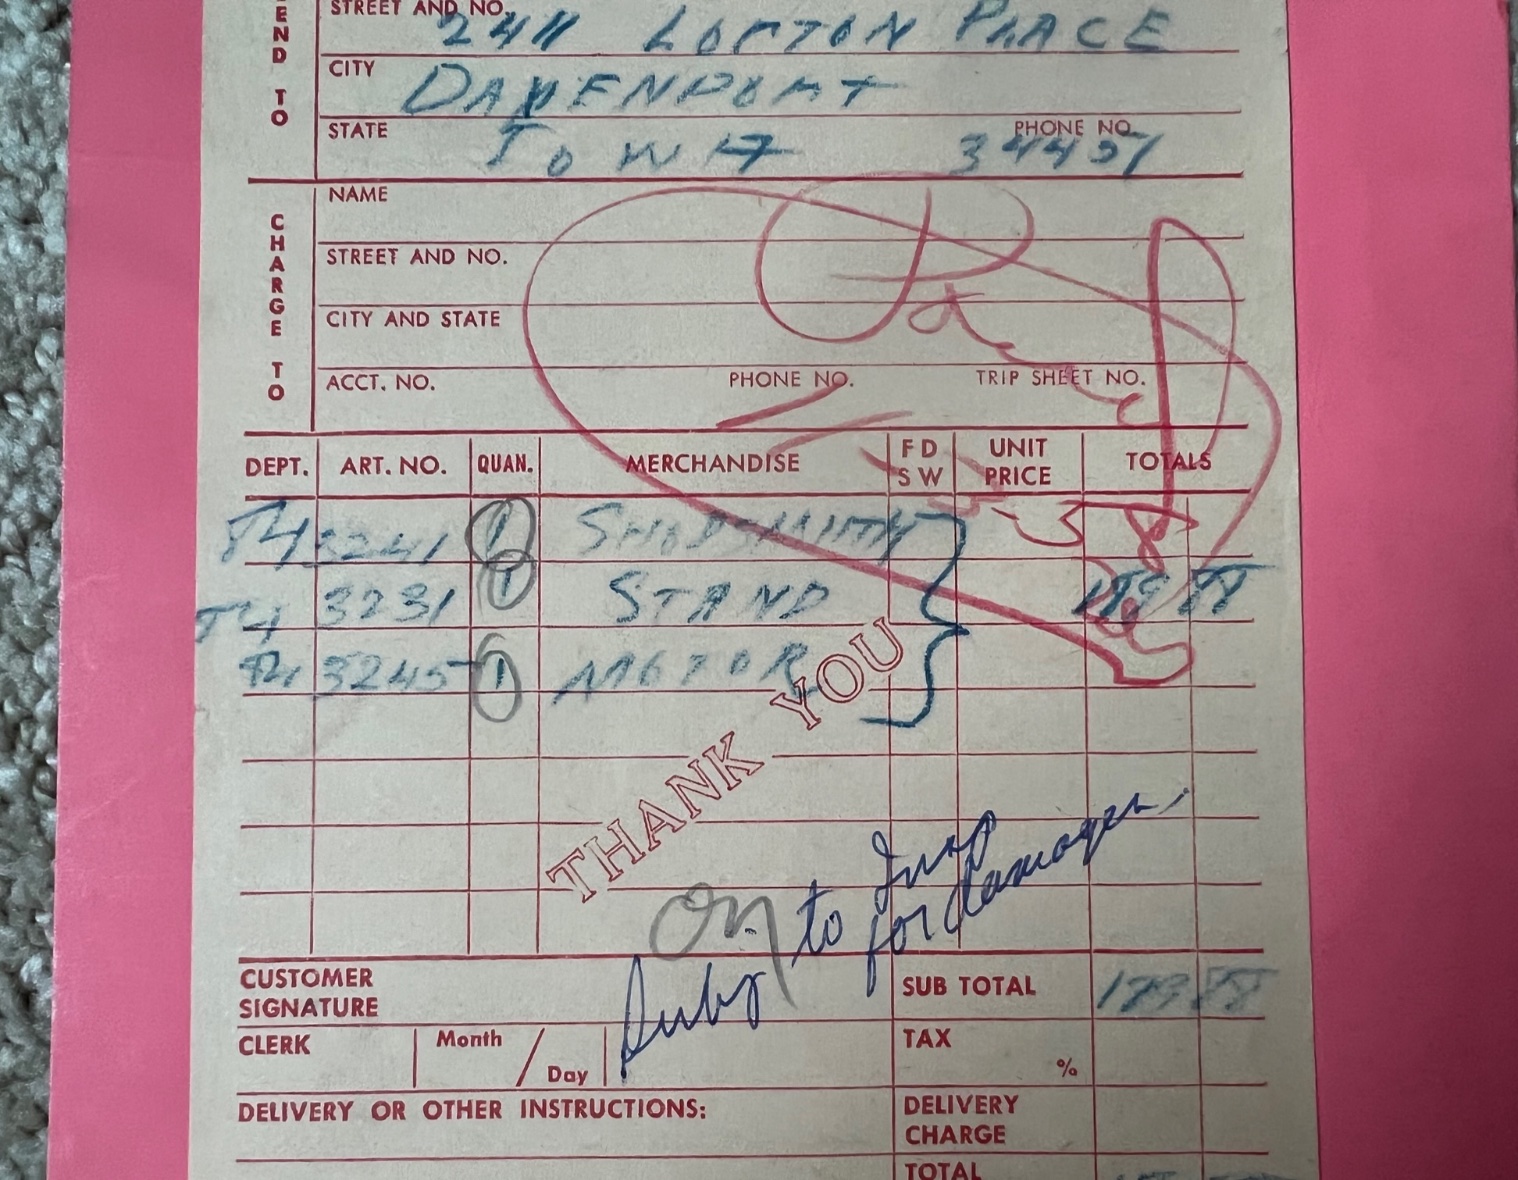 END TO
STREET AND NO. 2411 LOFTON PLACE
CITY DAVENPORT
STATE IOWA PHONE NO. 34457
CHARGE TO
NAME
STREET AND NO.
CITY AND STATE
ACCT. NO. PHONE NO. TRIP SHEET NO.
DEPT. ART. NO. QUAN. MERCHANDISE FD SW UNIT PRICE TOTALS
T4 3241 1 SHOPSMITH
T4 3231 1 STAND 189 88
T4 3245 1 MOTOR
THANK YOU
OK to Insp
for damages.
Ruby
CUSTOMER SIGNATURE SUB TOTAL 189 88
CLERK Month / Day TAX %
DELIVERY OR OTHER INSTRUCTIONS: DELIVERY CHARGE
TOTAL